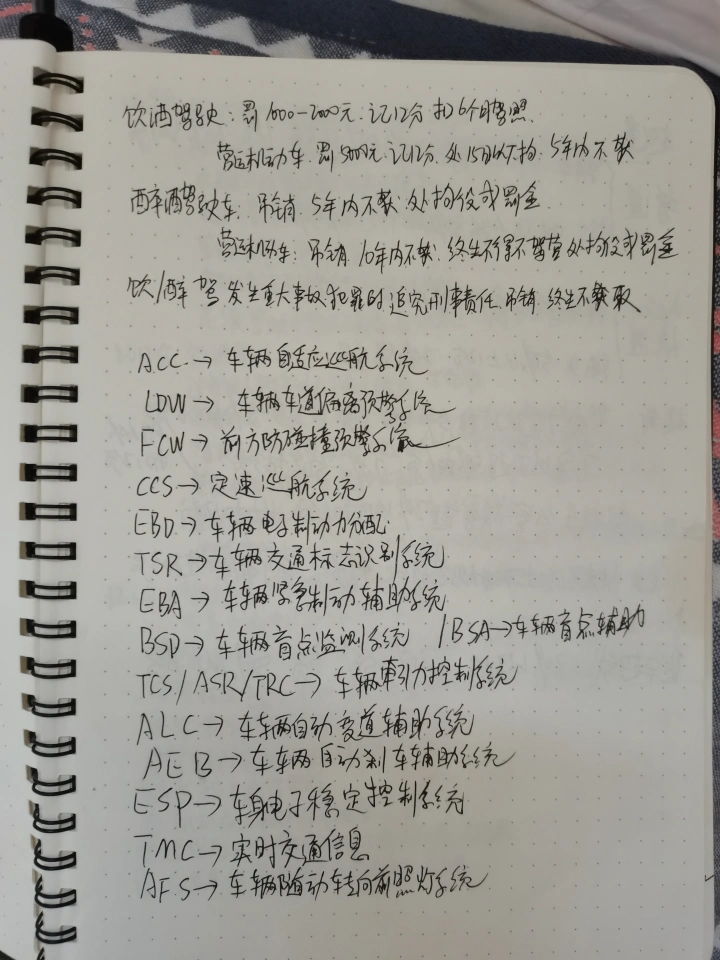 饮酒驾驶:罚1000-2000元.记12分 扣6个月驾照.
营运机动车.罚5000元.记12分.处15日以下拘.5年内不获
醉酒驾驶车:吊销.5年内不获.处拘役或罚金
营运机动车:吊销.10年内不获.终生不得不驾营 处拘役或罚金
饮/醉 驾 发生重大事故.犯罪时追究刑事责任.吊销.终生不获取
ACC→ 车辆自适应巡航系统
LDW→ 车辆车道偏离预警系统
FCW→ 前方防碰撞预警系统
CCS→ 定速巡航系统
EBD→车辆电子制动力分配
TSR→车辆交通标志识别系统
EBA→ 车辆紧急制动辅助系统
BSD→ 车辆盲点监测系统 /BSA→车辆盲点辅助
TCS/ASR/TRC→ 车辆牵引力控制系统
ALC→ 车辆自动变道辅助系统
AEB→车车辆自动刹车辅助系统
ESP→车身电子稳定控制系统
TMC→实时交通信息
AFS→车辆随动转向前照灯系统